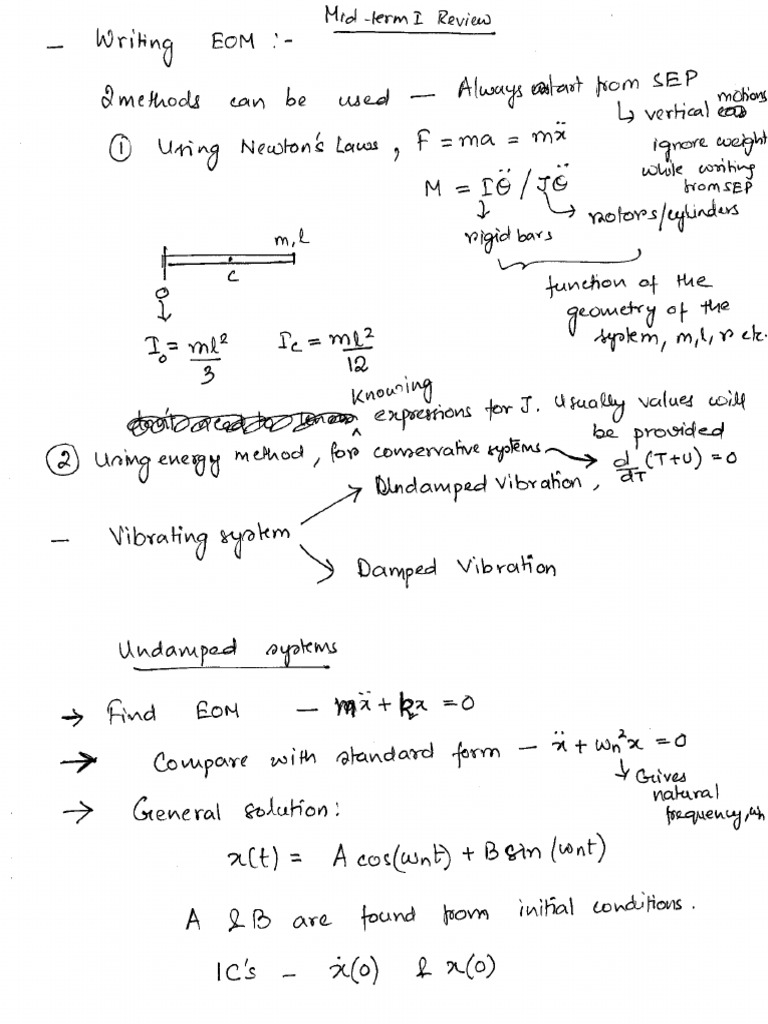 Mid-term I Review
- Writing EOM :-
2 methods can be used — Always start from SEP
↳ vertical motions
ignore weight
while writing
from SEP
① Using Newton's Laws, F = ma = mẍ
M = Iθ̈ / Jθ̈
rigid bars
rotors/cylinders
function of the
geometry of the
system, m, l, r etc.
m, l
C
O
I₀ = ml²/3 I_c = ml²/12
Knowing
expressions for J. Usually values will
be provided
② Using energy method, for conservative systems → d/dT (T+U) = 0
Undamped Vibration,
- Vibrating system
Damped Vibration
Undamped systems
→ Find EOM — mẍ + kx = 0
→ Compare with standard form — ẍ + ωn²x = 0
↳ Gives
natural
frequency, ωn
→ General solution:
x(t) = A cos(ωnt) + B sin(ωnt)
A & B are found from initial conditions.
IC's - ẋ(0) & x(0)